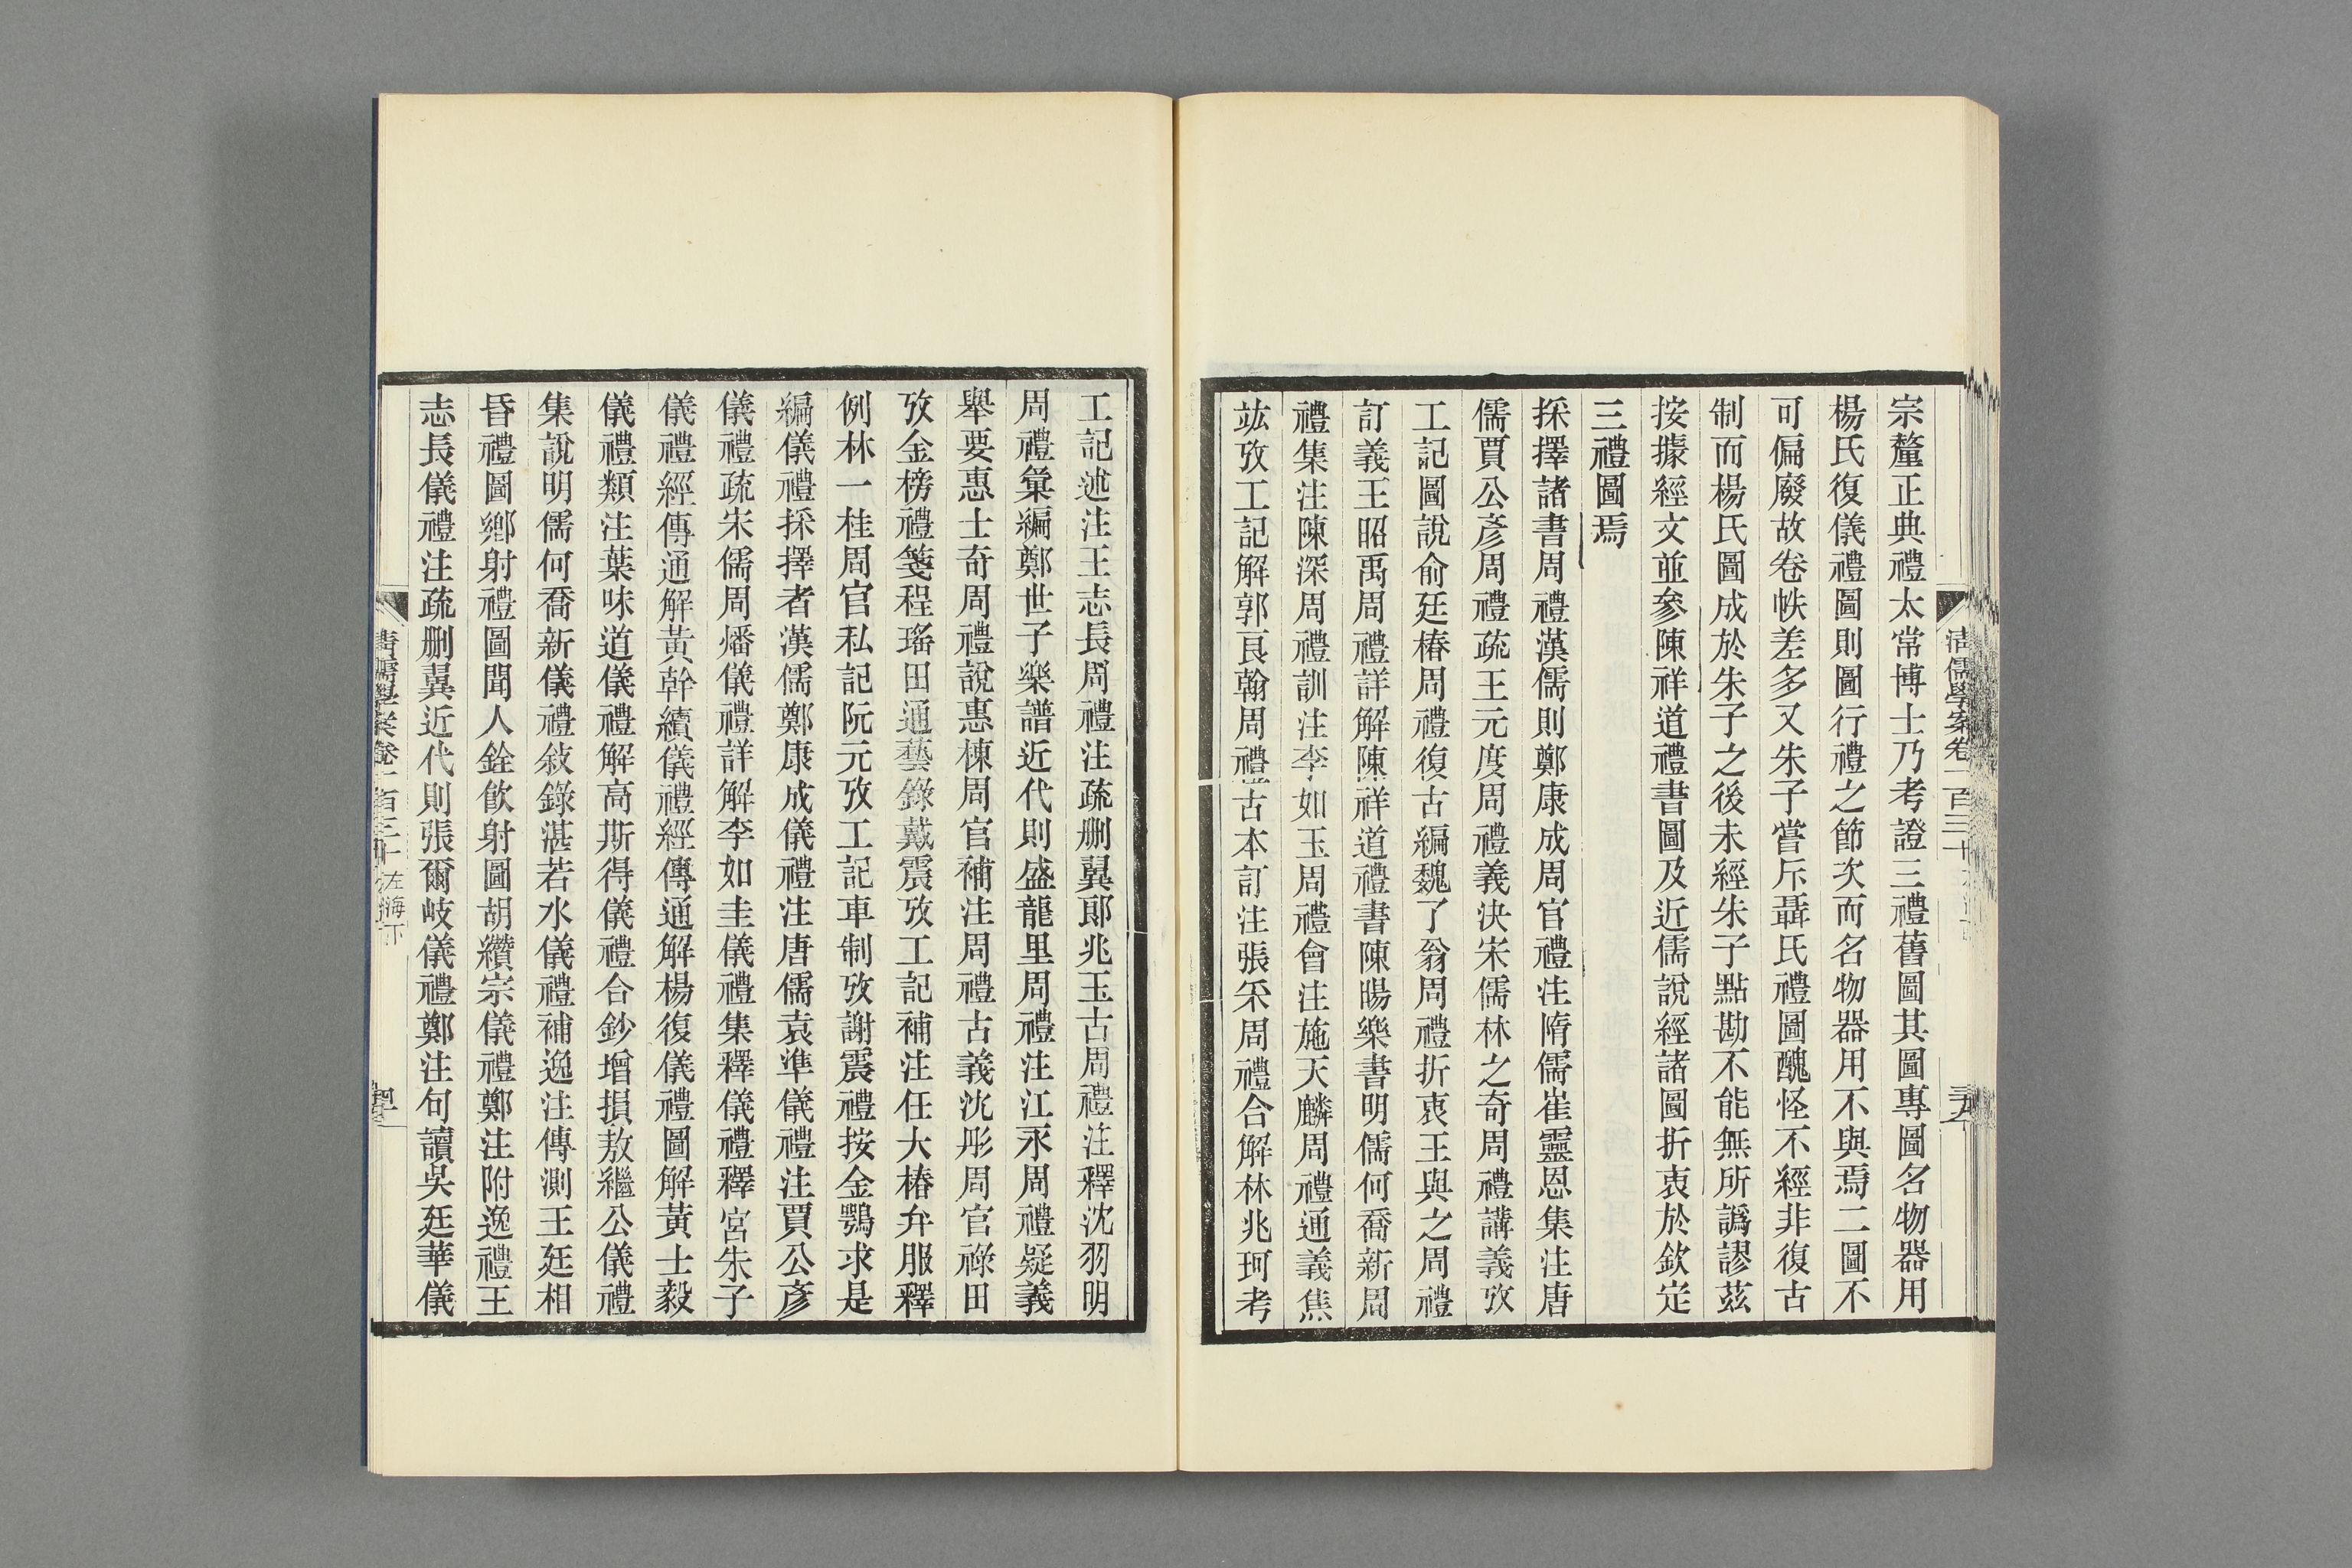 宗釐正典禮太常博士乃考證三禮舊圖其圖專圖名物器用
楊氏復儀禮圖則圖行禮之節次而名物器用不與焉二圖不
可偏廢故卷帙差多又朱子嘗斥聶氏禮圖醜怪不經非復古
制而楊氏圖成於朱子之後未經朱子點勘不能無所譌謬茲
按據經文並參陳祥道禮書圖及近儒說經諸圖折衷於欽定
三禮圖焉
採擇諸書周禮漢儒則鄭康成周官禮注隋儒崔靈恩集注唐
儒賈公彥周禮疏王元度周禮義決宋儒林之奇周禮講義攷
工記圖說俞廷椿周禮復古編魏了翁周禮折衷王與之周禮
訂義王昭禹周禮詳解陳祥道禮書陳暘樂書明儒何喬新周
禮集注陳深周禮訓注李如玉周禮會注施天麟周禮通義焦
竑攷工記解郭良翰周禮古本訂注張采周禮合解林兆珂考
工記述注王志長周禮注疏刪翼郎兆玉古周禮注釋沈羽明
周禮彙編鄭世子樂譜近代則盛龍里周禮注江永周禮疑義
舉要惠士奇周禮說惠棟周官補注周禮古義沈彤周官祿田
攷金榜禮箋程瑤田通藝錄戴震攷工記補注任大椿弁服釋
例林一桂周官私記阮元攷工記車制攷謝震禮按金鶚求是
編儀禮採擇者漢儒鄭康成儀禮注唐儒袁準儀禮注賈公彥
儀禮疏宋儒周燔儀禮詳解李如圭儀禮集釋儀禮釋宮朱子
儀禮經傳通解黃幹續儀禮經傳通解楊復儀禮圖解黃士毅
儀禮類注葉味道儀禮解高斯得儀禮合鈔增損敖繼公儀禮
集說明儒何喬新儀禮敍錄湛若水儀禮補逸注傳測王廷相
昏禮圖鄉射禮圖聞人銓飲射圖胡纘宗儀禮鄭注附逸禮王
志長儀禮注疏刪翼近代則張爾岐儀禮鄭注句讀吳廷華儀
清儒學案卷一百三十 左海下